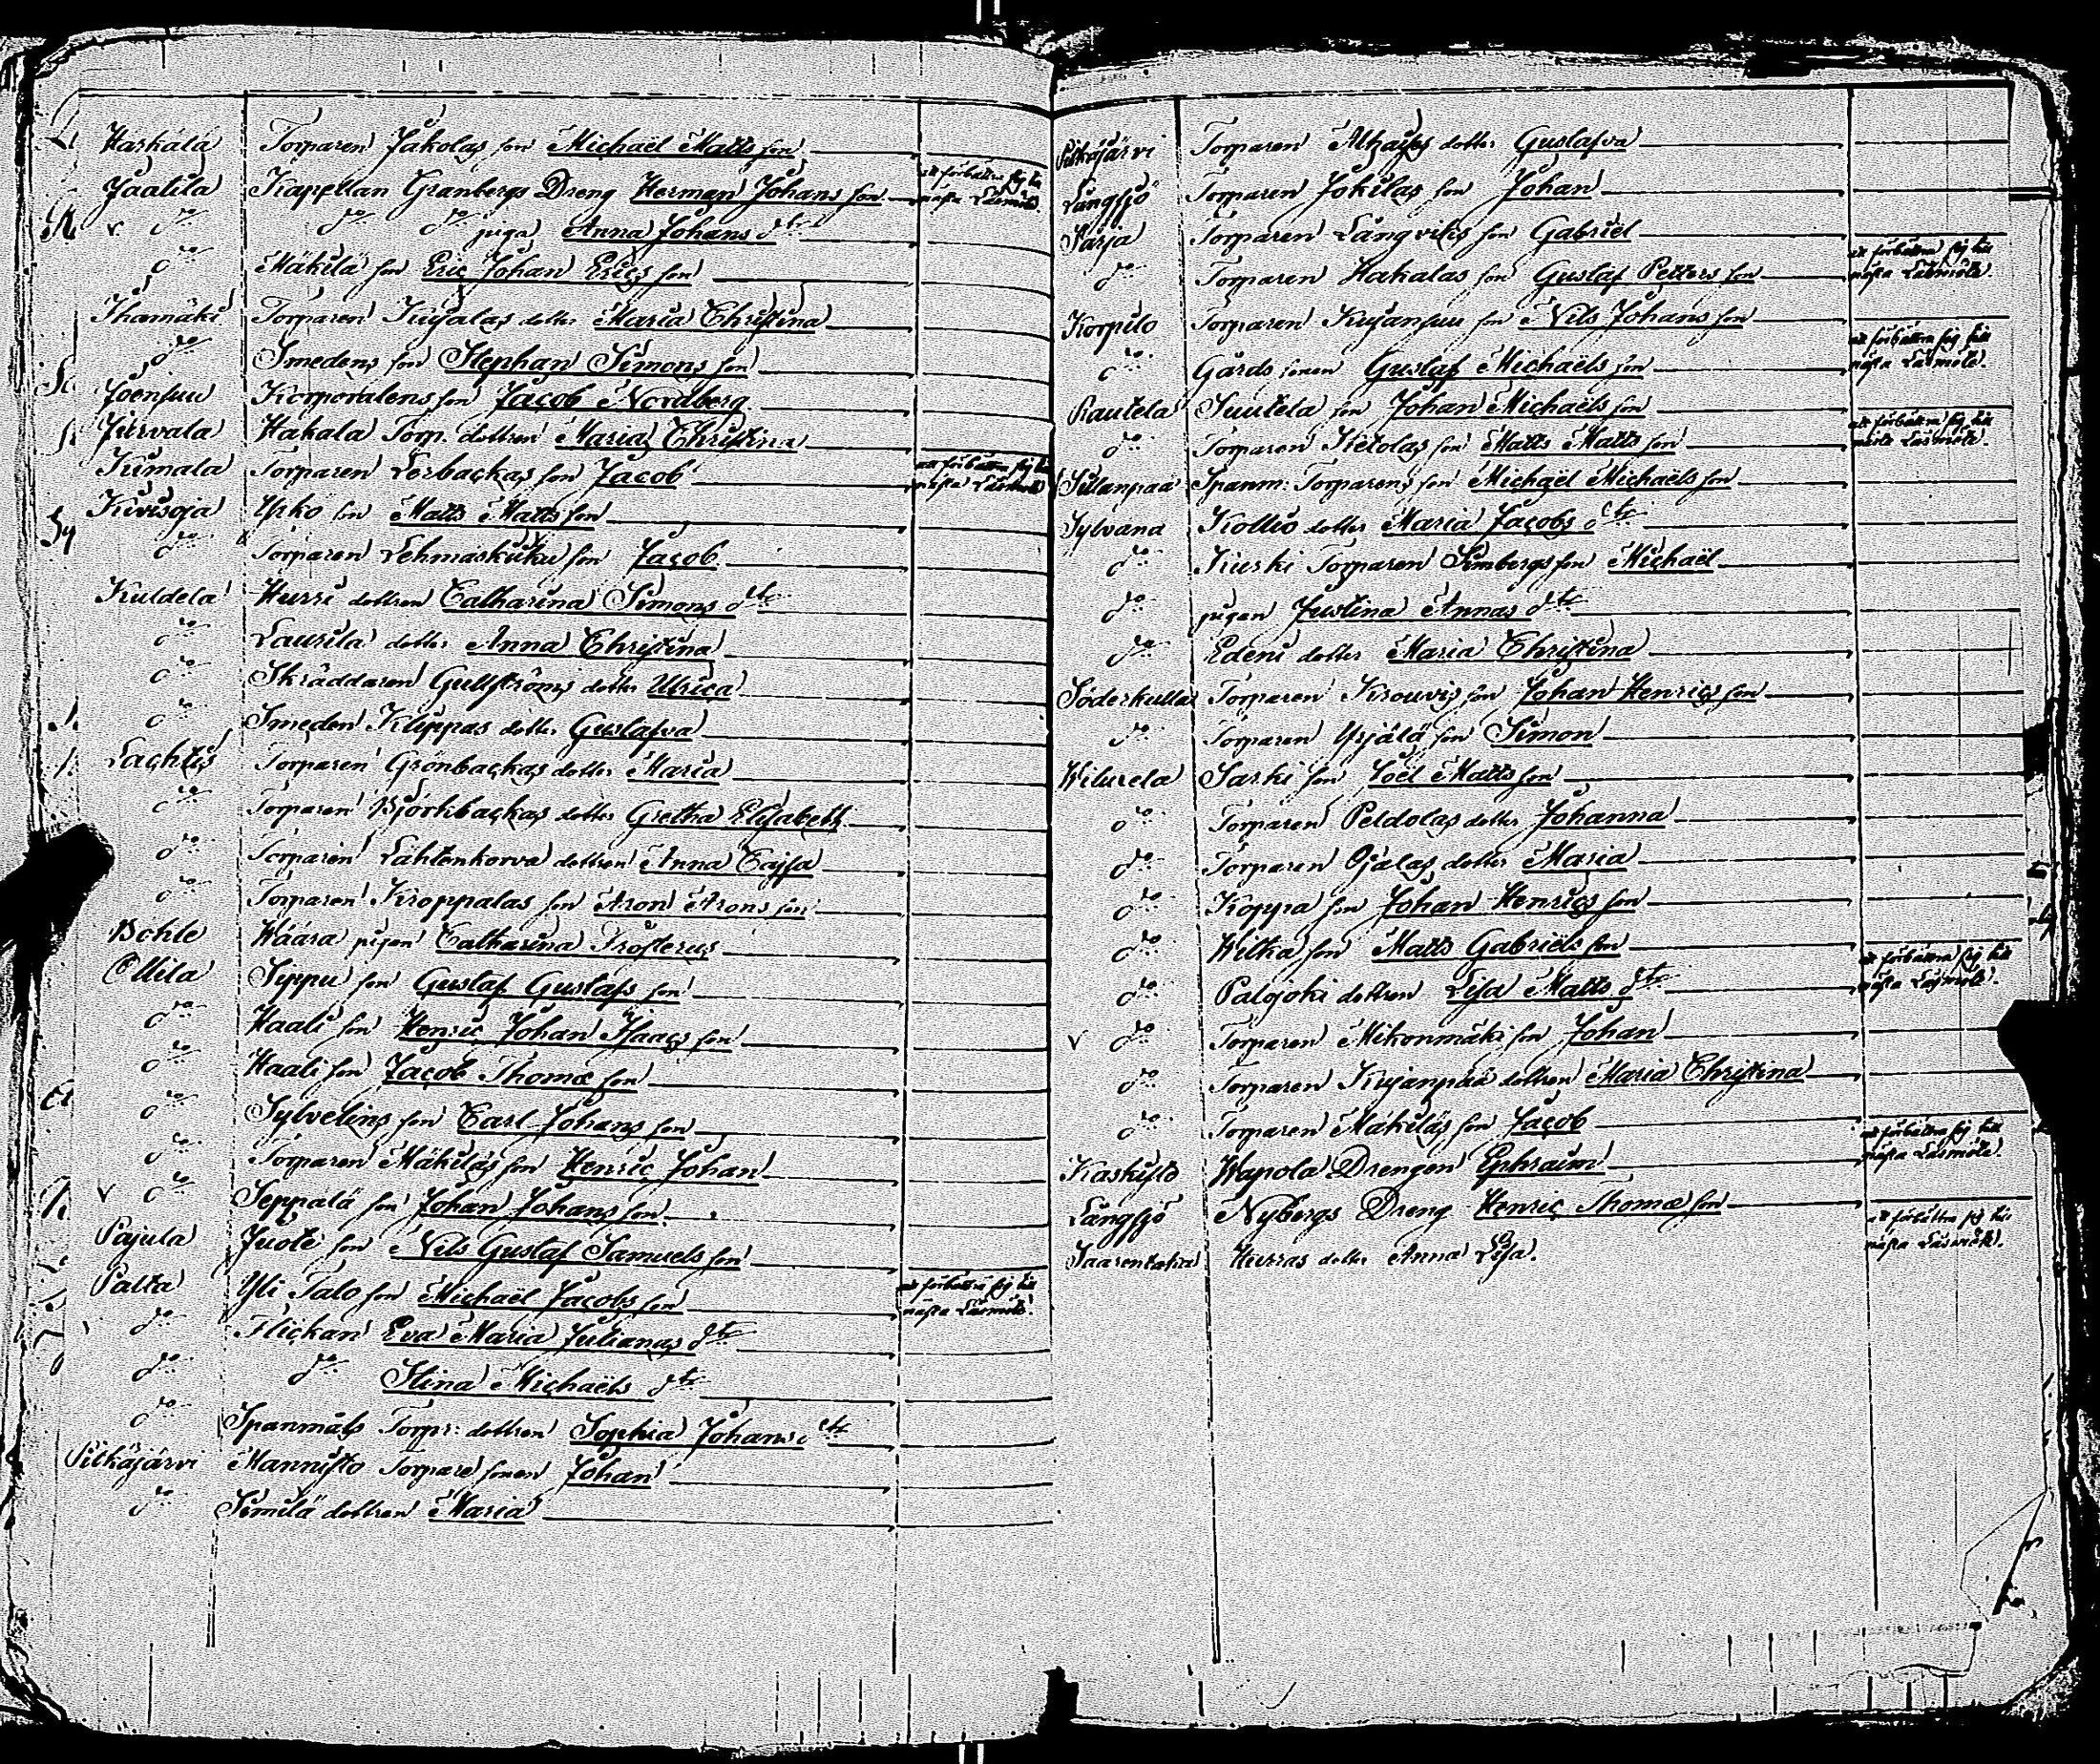 Harkälä Torparen Jakolas son Michaël Matts son
Jaatila Kapellan Granbergs Dreng Herman Johans son att förbättra sig till
nästa Läsmöte.
v do do do piga Anna Johans dtr
do Mäkilä son Eric Johan Erics son
Ihamäki Torparen Kujalas dotter Maria Christina
do Smedens son Stephan Simons son
Joensuu Korporalens son Jacob Nordberg
Jurvala Hakala Torp. dottren Maria Christina
Kumala Torparen Lerbackas son Jacob att förbättra sig till
nästa Läsmöte
Kivisoja Upko son Matts Matts son
do Torparen Lehmaskuku son Jacob
Kuldela Hurri dottren Catharina Simons dtr
do Laurila dotter Anna Christina
do Skräddaren Gullströms dotter Ulrica
do Smeden Klippas dotter Gustafva
Lachtis Torparen Grönbackas dotter Maria
do Torparen Björkbackas dotter Gretha Elisabeth
do Torparen Lähtenkorva dottren Anna Cajsa
do Torparen Kroppalas son Aron Arons son
Bohle Wäära pigan Catharina Frosterus
Ollila Sippu son Gustaf Gustafs son
do Haali son Henric Johan Isaacs son
do Haali son Jacob Thomæ son
do Sylvelins son Carl Johans son
do Torparen Mäkiläs son Henric Johan
v do Seppälä son Johan Johans son
Pajula Juote son Nils Gustaf Samuels son
Palta Yli Talo son Michaël Jacobs son att förbättra sig till
nästa Läsmöte.
do Flickan Eva Maria Julianas dtr
do do Stina Michaëls dtr
do Spanmåls Torpr: dottren Sophia Johans dtr
Pitkäjärvi Mannisto Torpare sonen Johan
do Simila dottren Maria
Pitkäjärvi Torparen dotter Gustafva
Långsjö Torparen Jokilas son Johan
Särja Torparen Långviks son Gabriel
do Torparen Hakalas son Gustaf Petters son att förbättra sig till
nästa Läsmöte.
Korpilo Torparen Kujansuu son Nils Johans son
do Gårds sonen Gustaf Michaëls son att förbättra sig till
nästa Läsmöte.
Rautela Suutela son Johan Michaëls son
do Torparen Ketolas son Matts Matts son att förbättra sig till
nästa Läsmöte.
Sillanpää Spanm: Torparens son Michaël Michaëls son
Sylvana Kollio dotter Maria Jacobs dtr
do Kuski Torparen Simbergs son Michaël
do pigan Justina Annas dtr
do Edeni dotter Maria Christina
Söderkulla Torparen Krouvis son Johan Henrics son
do Torparen Yrjälä son Simon
Wilurela Särki son Joël Matts son
do Torparen Peldolas dotter Johanna
do Torparen Ojalas dotter Maria
do Koppa son Johan Henrics son
do Wilka son Matts Gabriels son
do Palojoki dottren Lisa Matts dtr att förbättra sig till
nästa Läsmöte.
v do Torparen Mikonmäki son Johan
do Torparen Kujanpää dottren Maria Christina
do Torparen Mäkiläs son Jacob
Kaskisto Wapola Drengen Ephraim att förbättra sig till
nästa Läsmöte.
Långsjö Nybergs Dreng Henric Thomæ son
Saarentaka Hurras dotter Anna Lisa. att förbättra sig till
nästa Läsmöte.